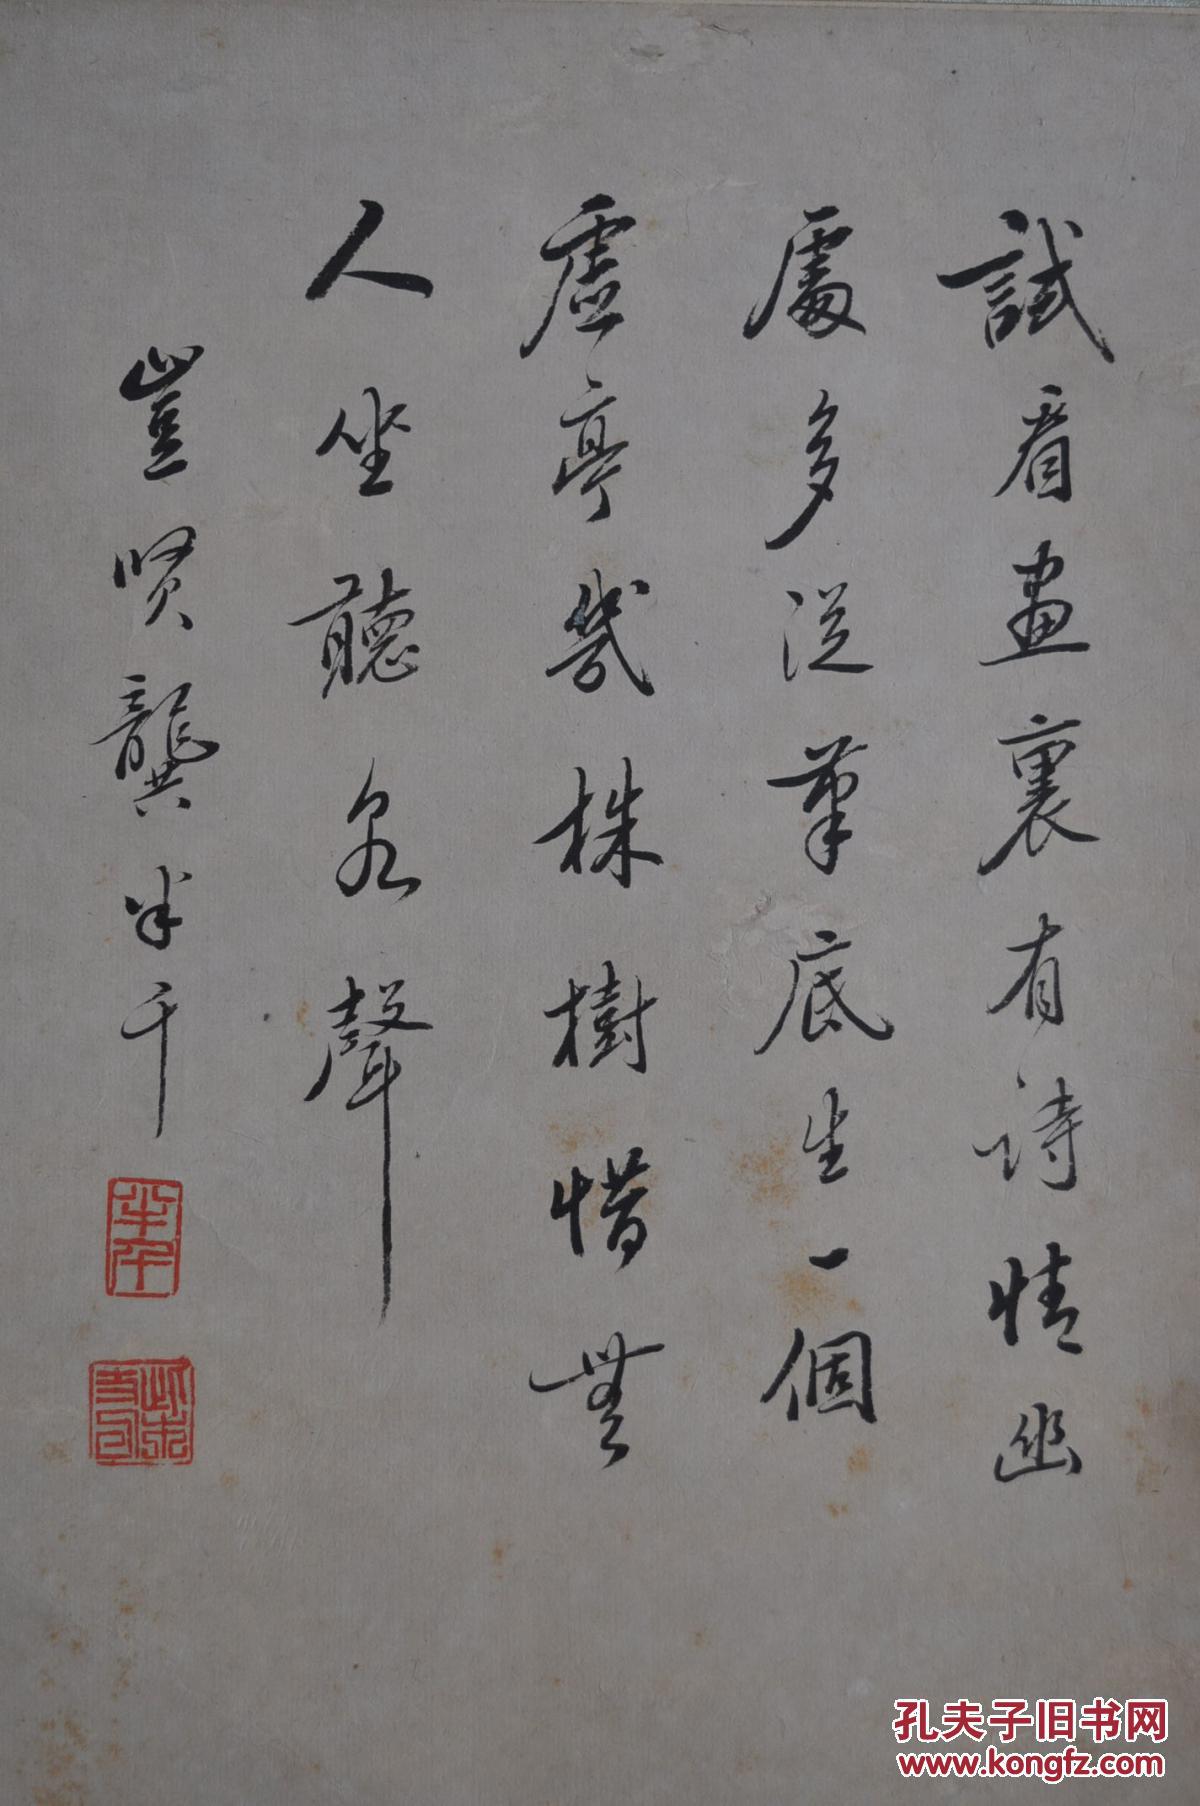 試看畫裏有詩情幽
處多從筆底生一個
虛亭幾株樹惜無
人坐聽泉聲
豈賢龔半千
半千
孔夫子旧书网
www.kongfz.com